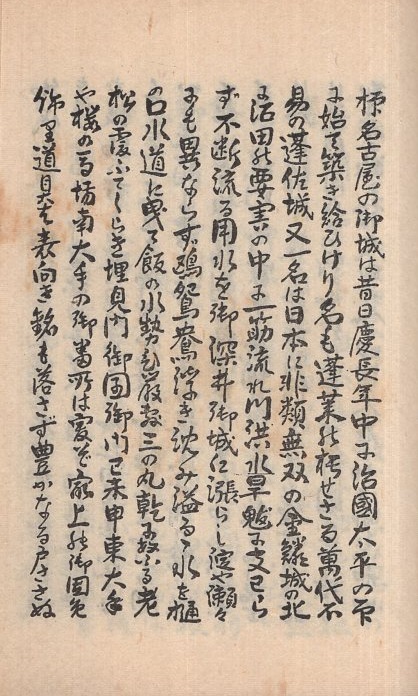 標名古屋の御城は昔日慶長年中に治國太平の
に始て築き給ひけり名も蓬莱の せさる萬代不
易の蓬佐城又一名は日本に非類無双の金鱗城の北
に沼田の要害の中に一筋流れ川洪水旱 に
ず不断流る用水を御深井御城に漲らし淀や瀬々
にも異ならず鴎鴛鴦浮き沈み溢るゝ水を樋
の口水道に曳て の水勢も 三の丸乾に ふる老
松の霞ふてしらき埋見門御園御門巳未申東大手
や桜の馬場南大手の御番所は 上の御固免
飾り道具を表向き銘も落さず豊かなる戸ささぬ